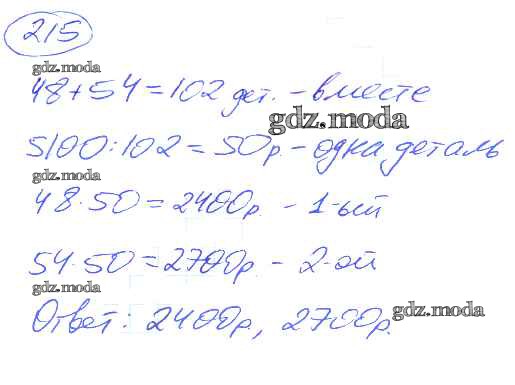 215
gdz.moda
48+54=102 дет. - вместе
gdz.moda
5100:102=50р. - одна деталь
gdz.moda
48·50=2400р. - 1-ый
54·50=2700р. - 2-ой
gdz.moda
Ответ: 2400р, 2700р.
gdz.moda